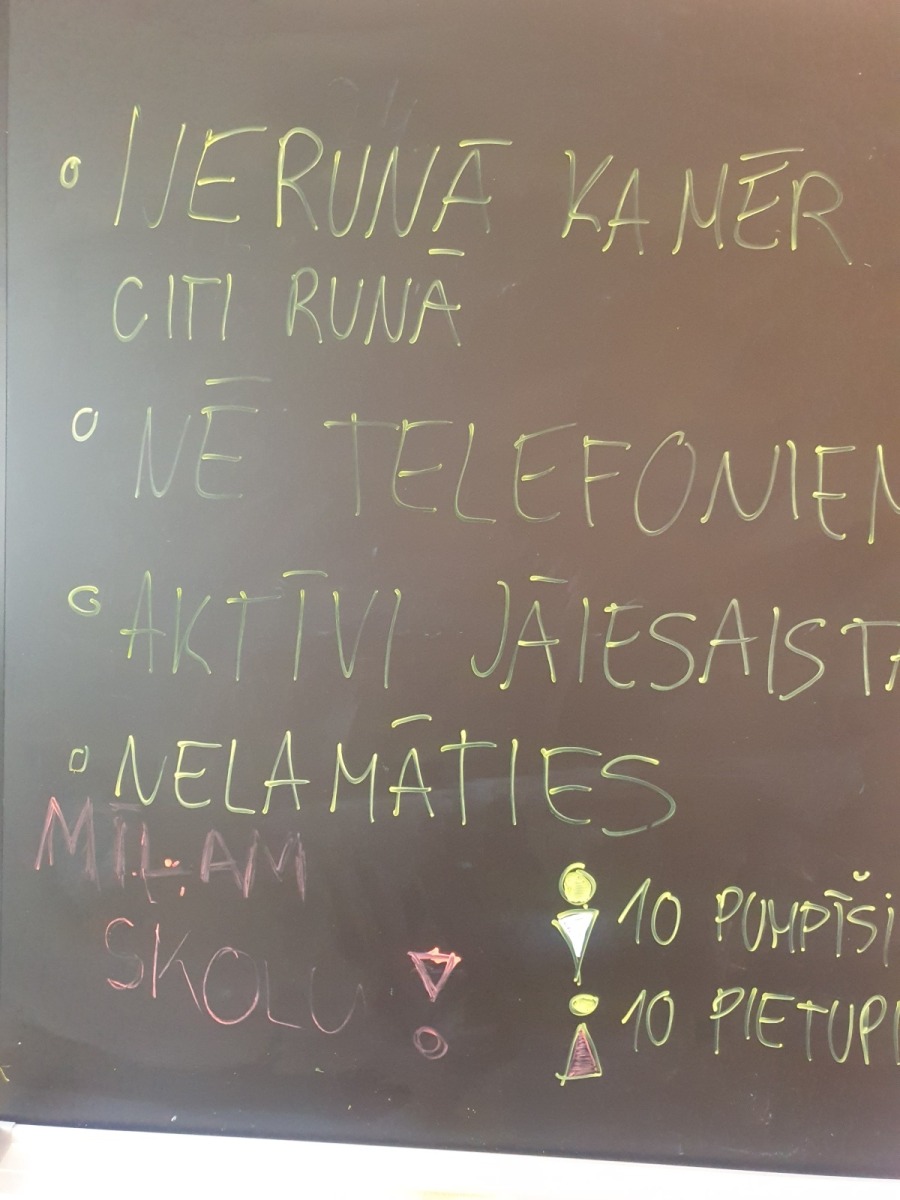 NERUNĀ KAMĒR
CITI RUNĀ
NĒ TELEFONIEM
AKTĪVI JĀIESAISTA
NELAMĀTIES
MĪĻAM
SKOLU
10 PUMPĪŠI
10 PIETUPI